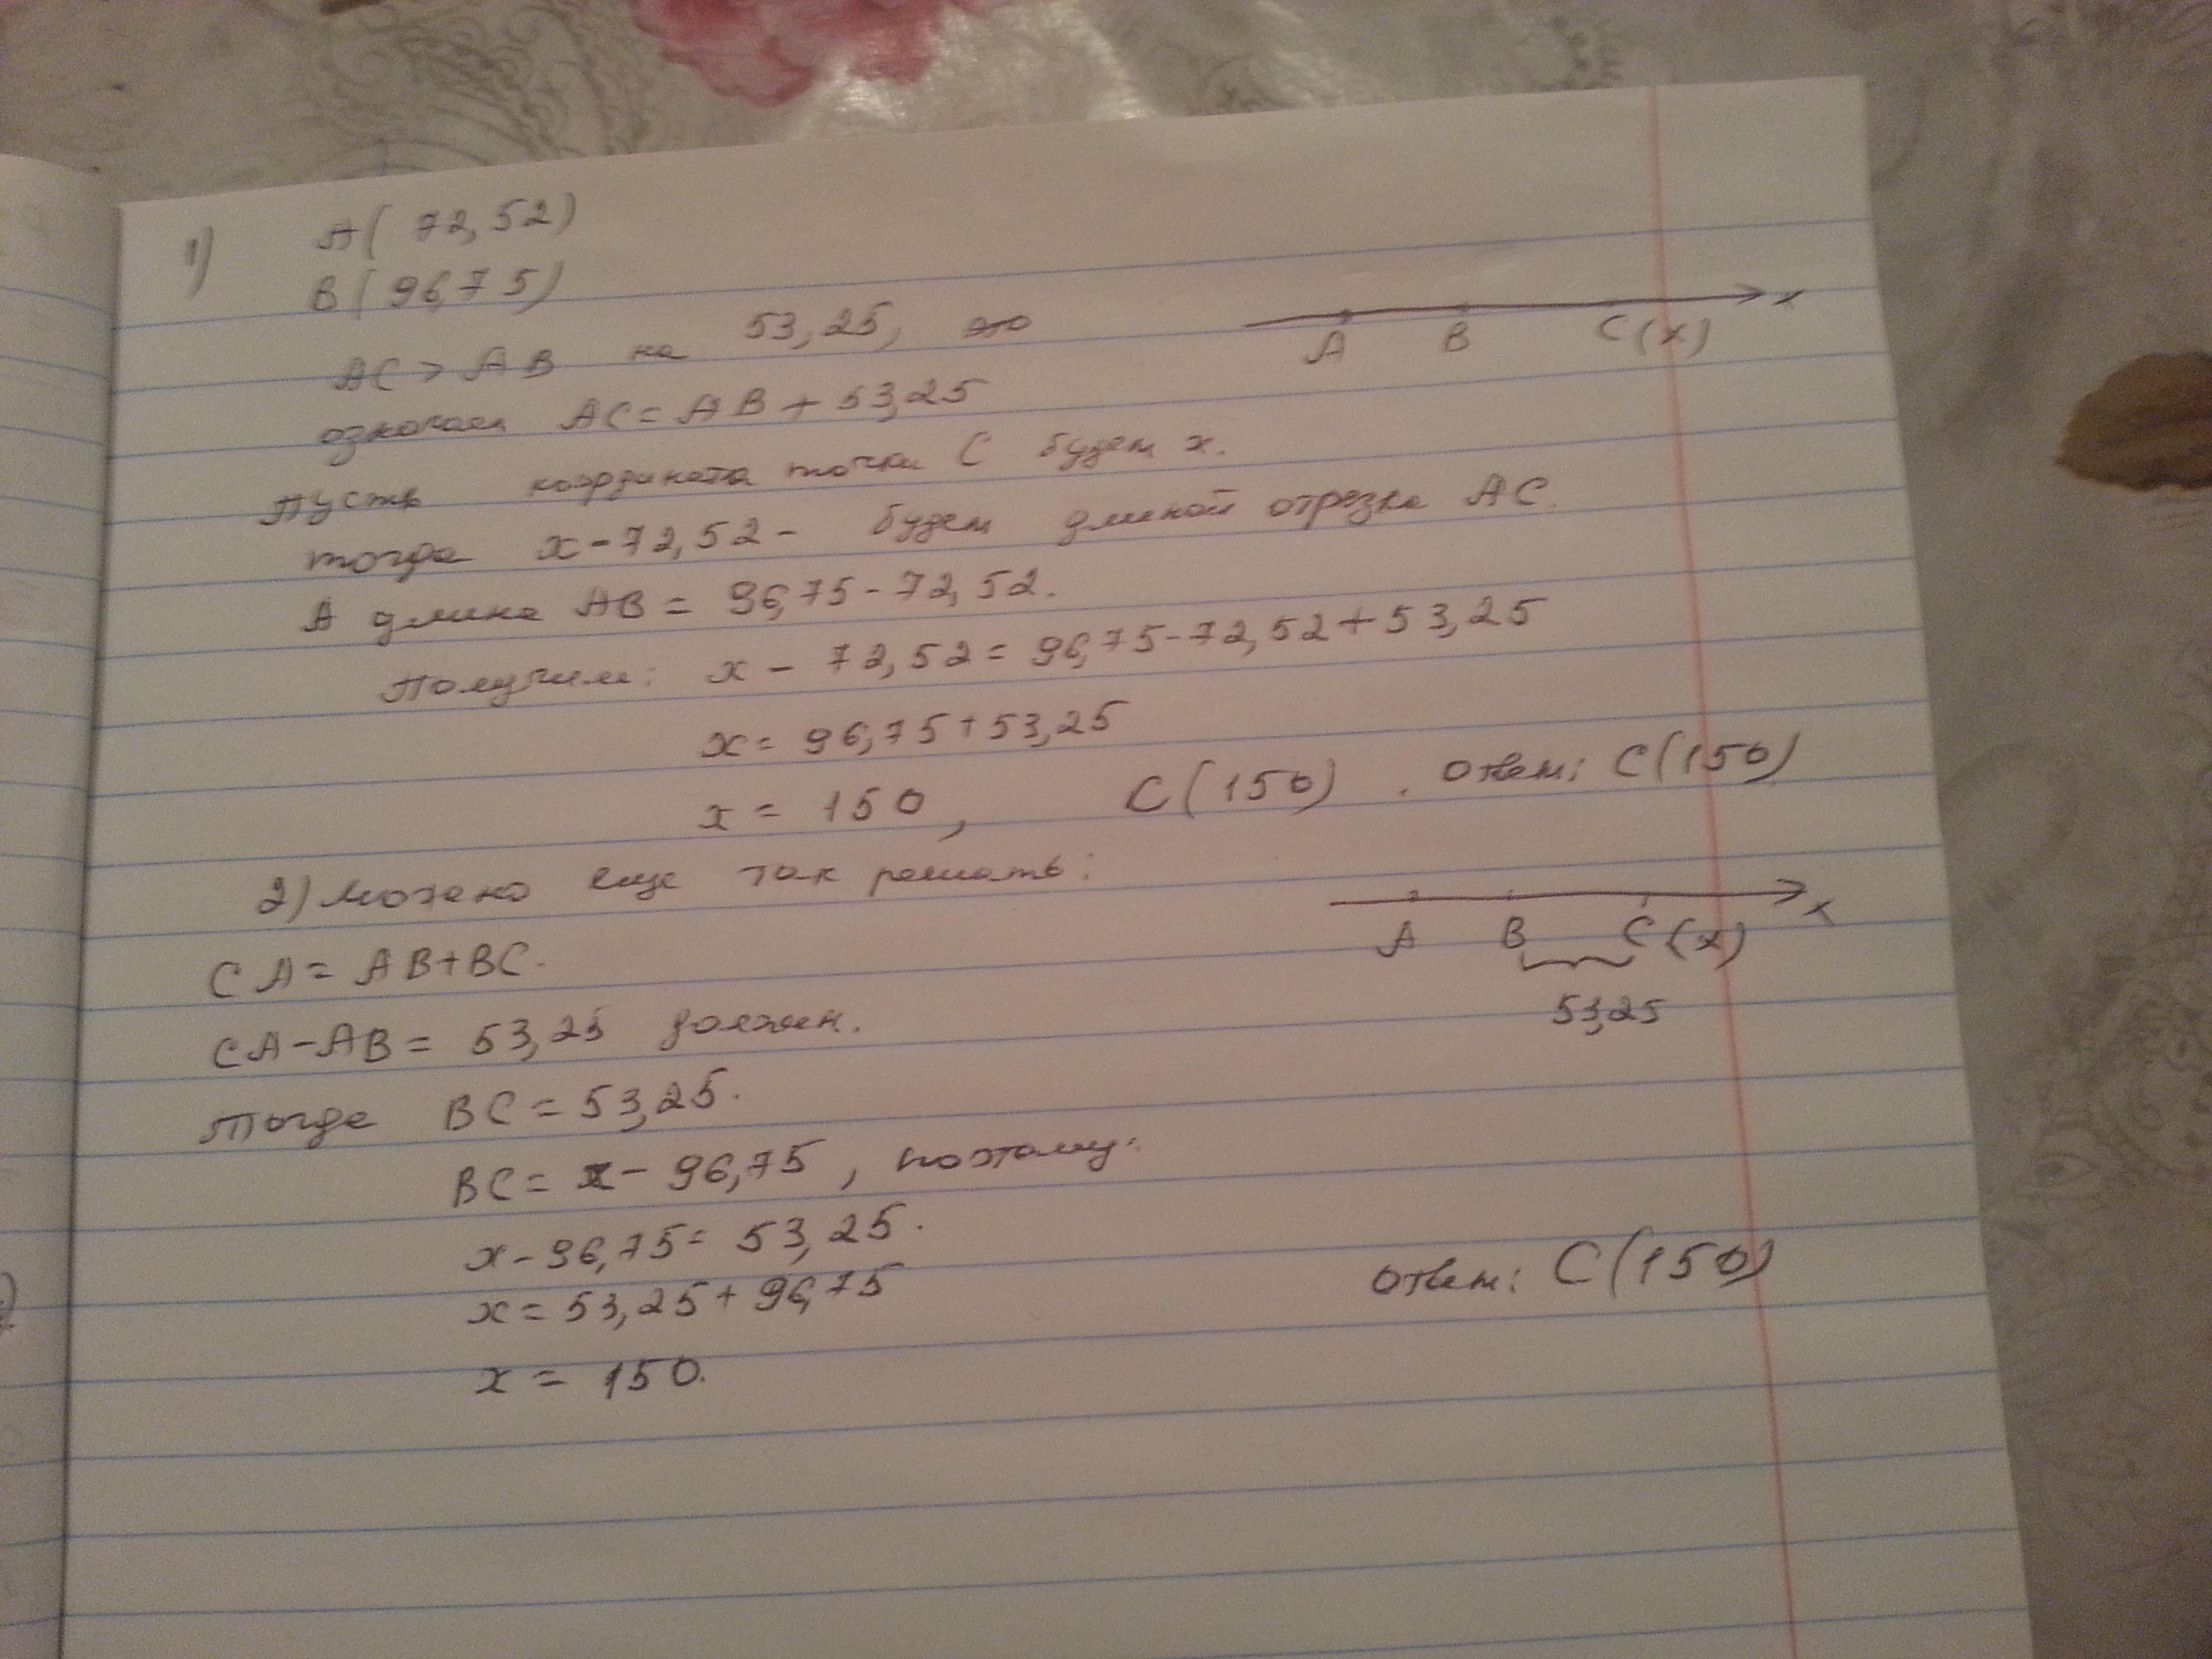 1) А( 72,52)
В(96,75)
АС > АВ на 53,25, это
означает АС = АВ + 53,25
А В С(х) х
Пусть координата точки С будет х.
тогда х - 72,52 - будет длиной отрезка АС.
А длина АВ = 96,75 - 72,52.
Получим: х - 72,52 = 96,75 - 72,52 + 53,25
х = 96,75 + 53,25
х = 150, С(150). Ответ: С(150)
2) Можно еще так решать:
А В С(х) х
53,25
СА = АВ + ВС.
СА - АВ = 53,25 должен.
Тогда ВС = 53,25.
ВС = х - 96,75, поэтому:
х - 96,75 = 53,25.
х = 53,25 + 96,75
х = 150.
Ответ: С(150)